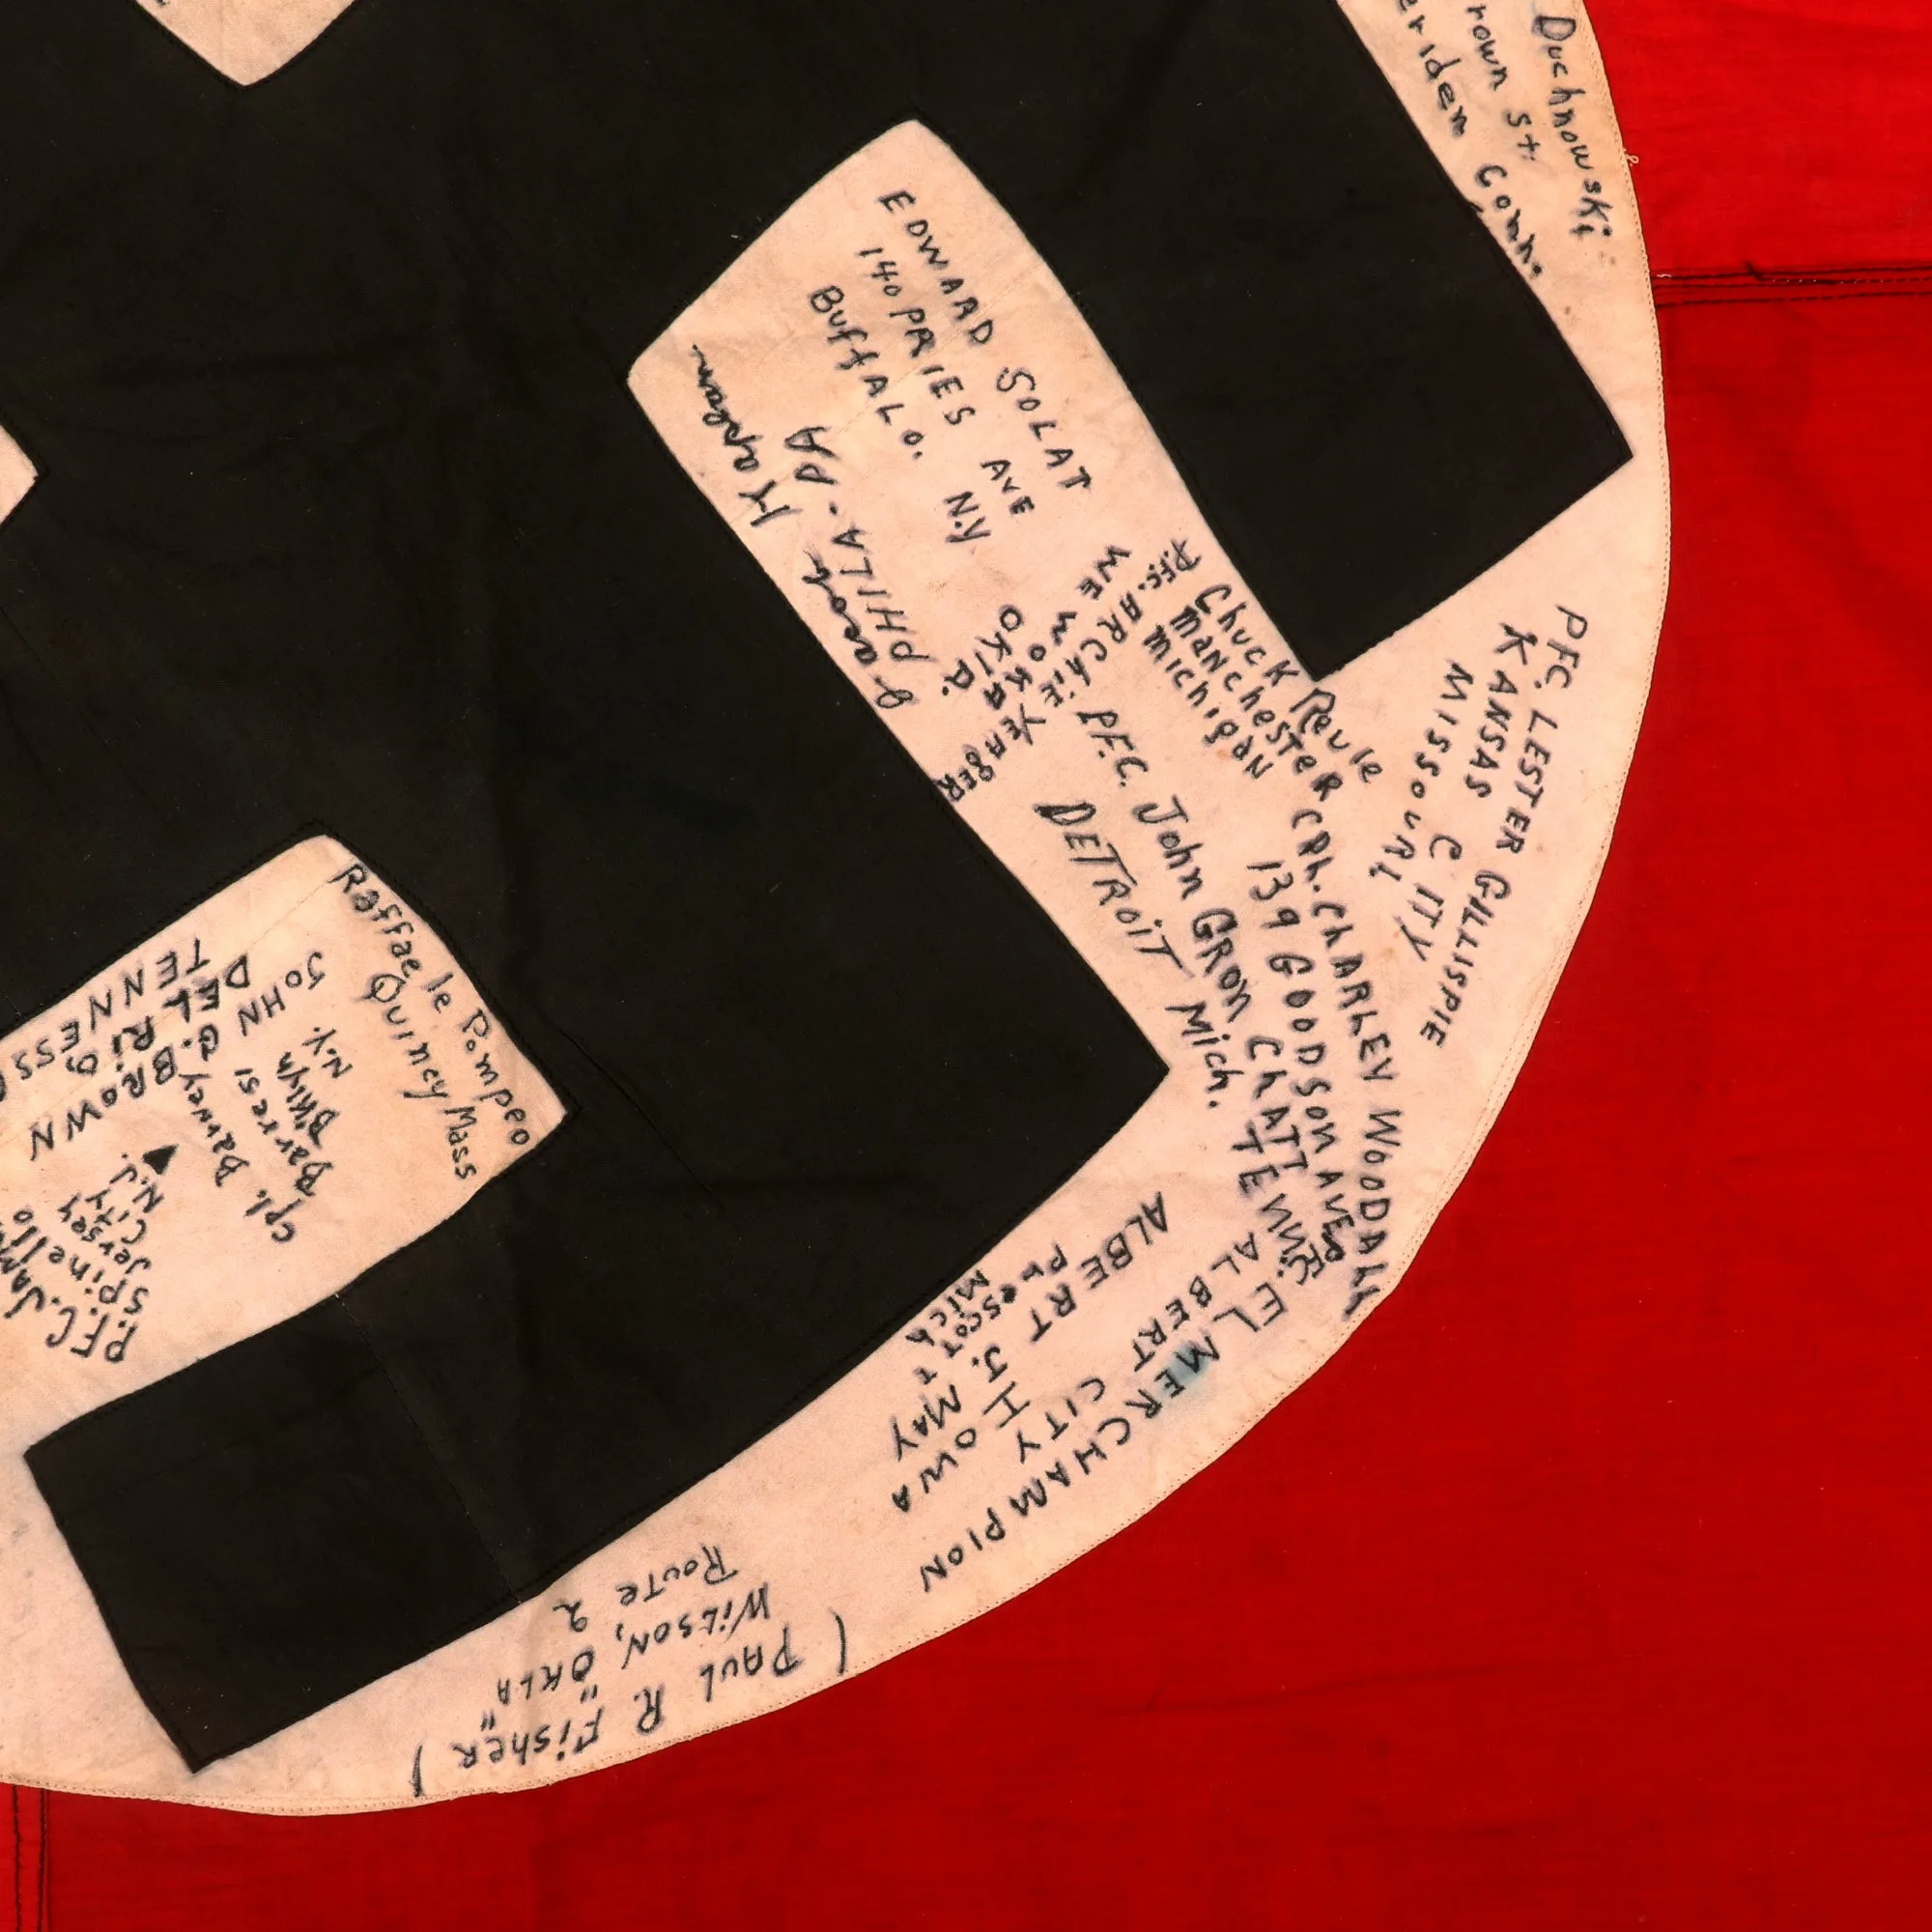 Duchnowski
rown St.
eriden Conn.
EDWARD SOLAT
140 PRIES AVE
BuffALO. N.Y
Jacob Kaplan
PHILA. PA
Chuck Reule
Manchester
Michigan
PFC. ARCHIE YEAGER
WEWOKA
OKLA.
P.F.C. John GRON
DETROIT Mich.
PFC. LESTER GILLISPIE
KANSAS CITY
MISSOURI
CPL. CHARLEY WOODALL
139 GOODSON AVE
CHATT TENN.
PFC. ELMER CHAMPION
ALBERT CITY
IOWA
ALBERT J. MAY
PRESCOTT
MICH
( PAUL R. Fisher )
WILSON, "OKLA"
ROUTE 2
Raffaele Pompeo
Quincy Mass
Cpl. Barney
Barresi
B'klyn
N.Y.
JOHN G. BROWN
DEL RIO
TENNESS
P.F.C. JAM
Spinello
Jersey
City
N.J.